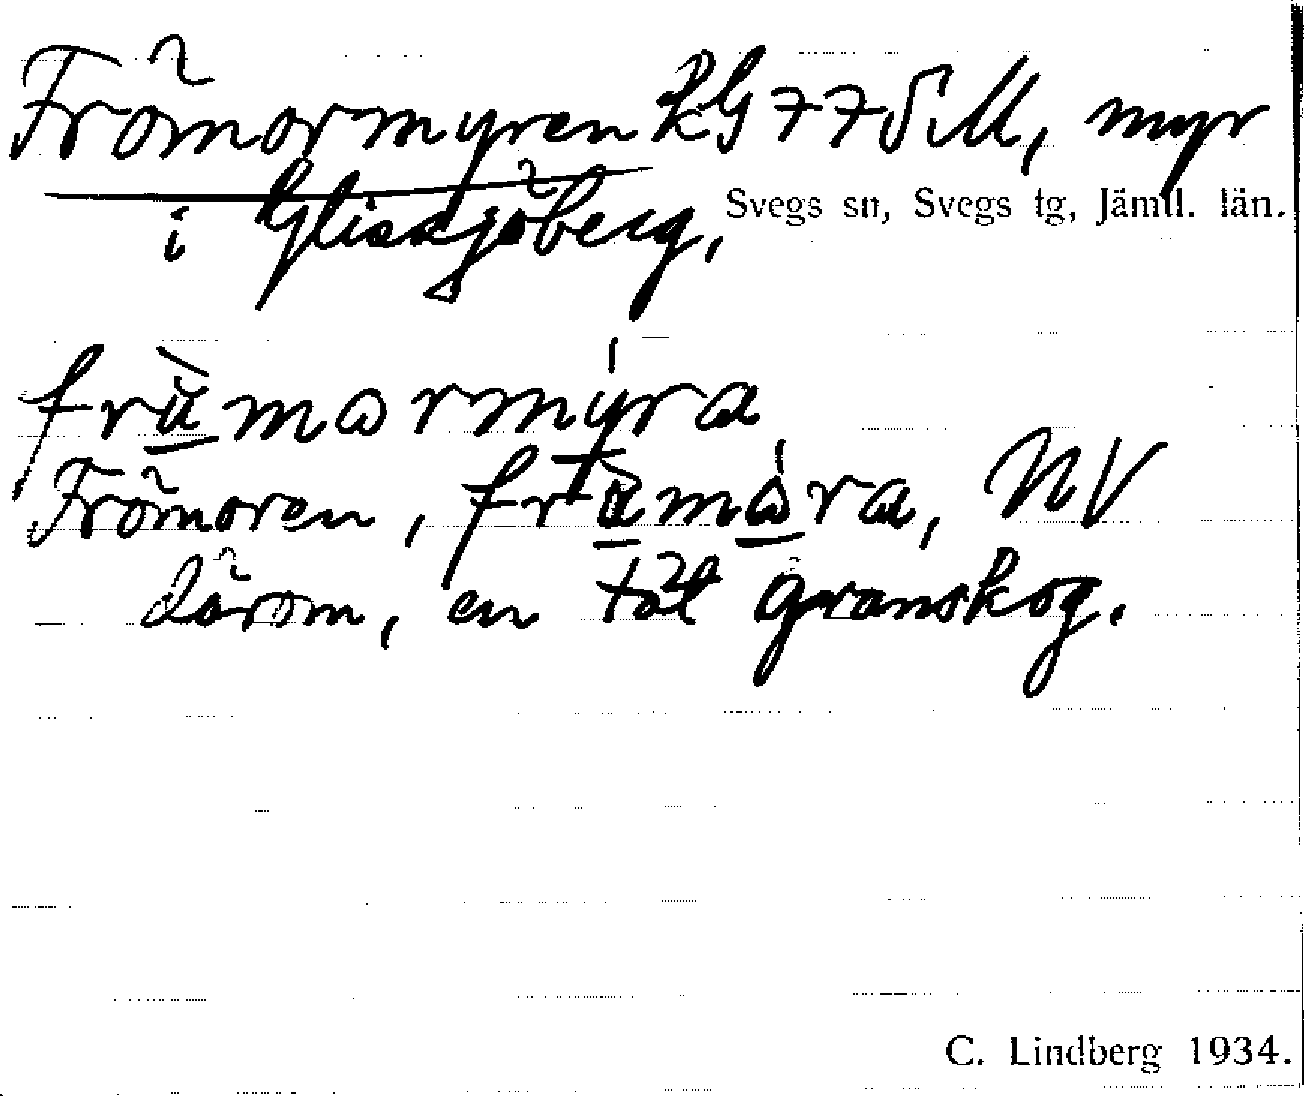 Frömormyren kG 77 S.M, myr
i Glissjöberg, Svegs sn, Svegs tg, Jämtl. län.
frù̲mormýra
Frömoren, frù̲mó̲ra, NV
därom, en tät granskog.
C. Lindberg 1934.